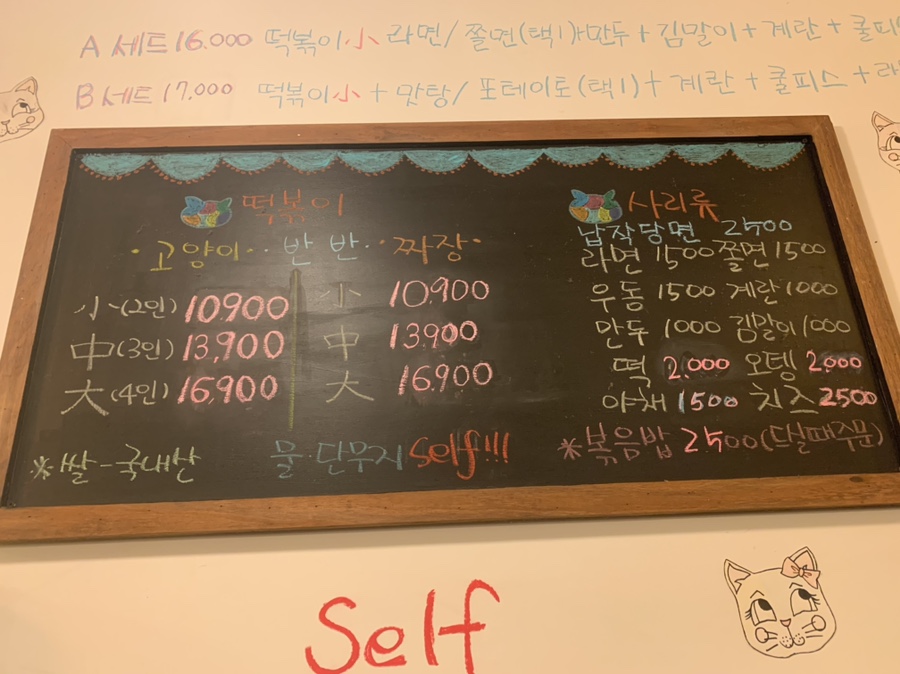 A 세트 16.000 떡볶이小 라면/쫄면(택1)+만두+김말이+계란+쿨피스
B 세트 17,000 떡볶이小+맛탕/포테이토(택1)+계란+쿨피스+
떡볶이
·고양이··반반··짜장·
小(2인) 10900 小 10.900
中(3인) 13,900 中 13.900
大(4인) 16,900 大 16.900
*쌀-국내산 물·단무지 Self!!!
사리류
납작당면 2500
라면 1500 쫄면 1500
우동 1500 계란 1000
만두 1000 김말이 1000
떡 2.000 오뎅 2.000
야채 1500 치즈 2500
*볶음밥 2500(드실때주문)
Self